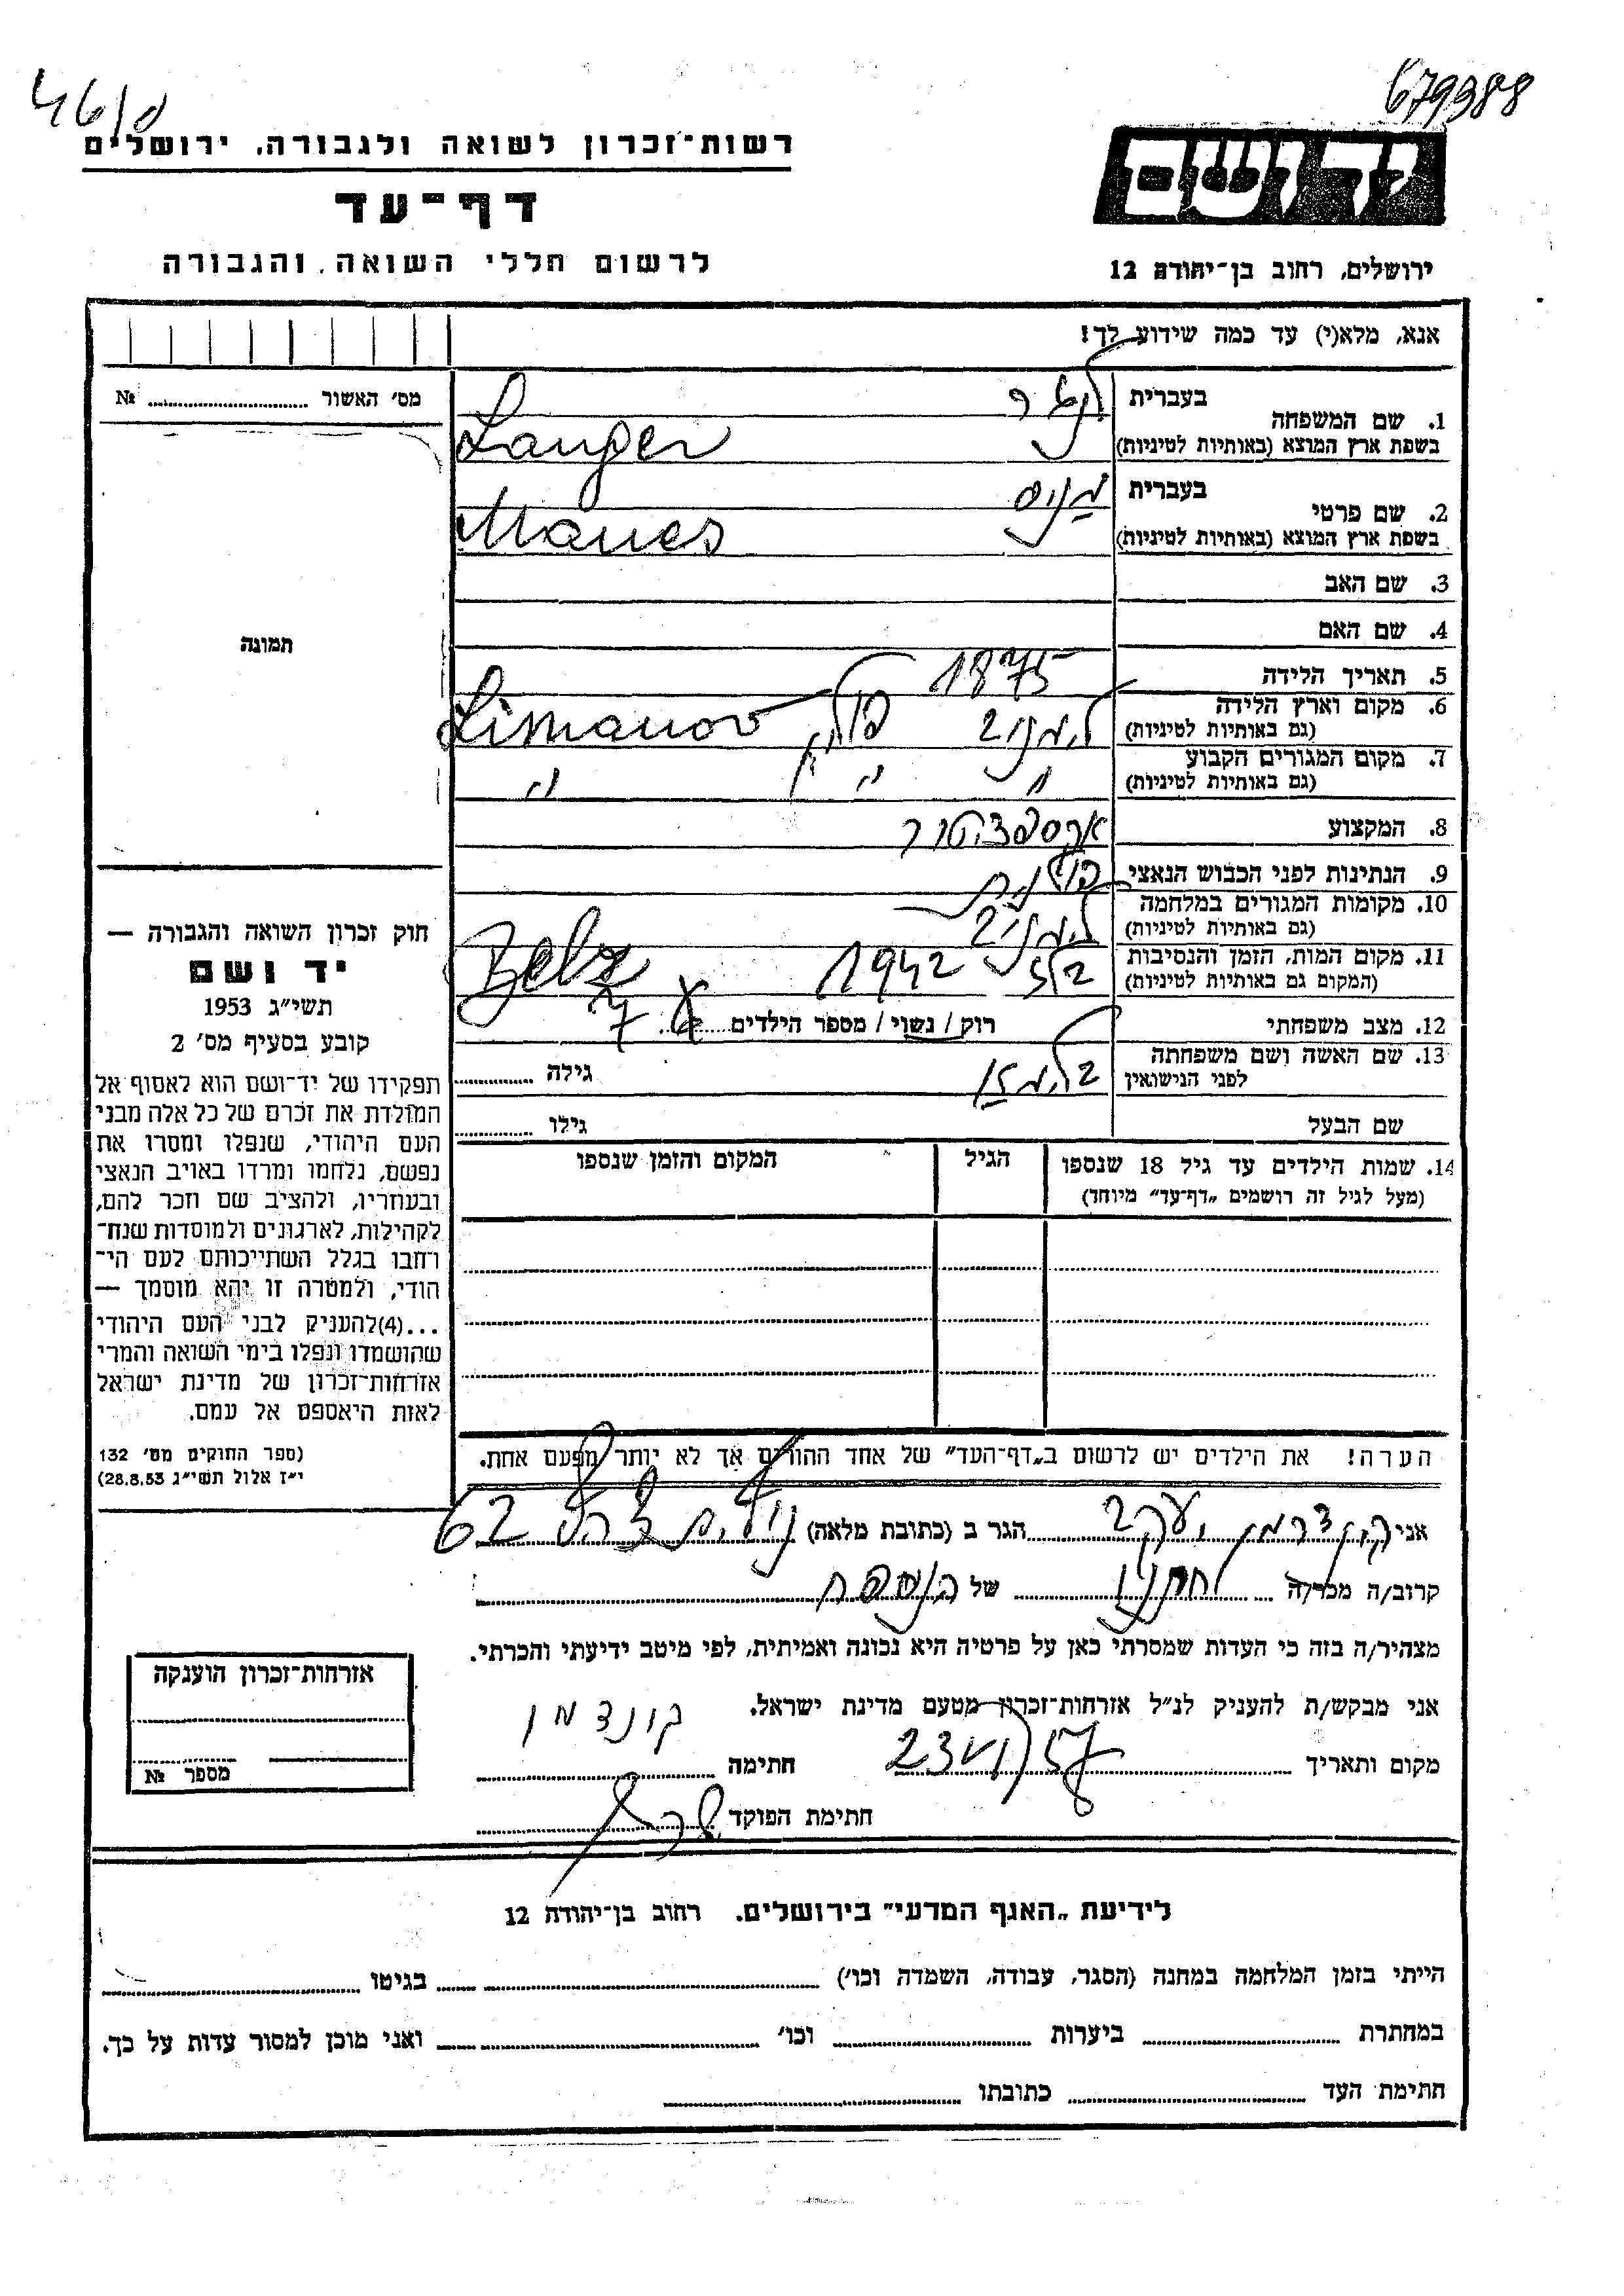 679388
46/0
יד ושם
רשות־זכרון לשואה ולגבורה, ירושלים
דף־עד
לרשום חללי השואה והגבורה
ירושלים, רחוב בן־יהודה 12
אנא, מלא(י) עד כמה שידוע לך!
מס׳ האשור № ........
1. שם המשפחה
בעברית לנגר
בשפת ארץ המוצא (באותיות לטיניות) Langer
2. שם פרטי
בעברית מנס
בשפת ארץ המוצא (באותיות לטיניות) Manes
3. שם האב
4. שם האם
5. תאריך הלידה 1875
6. מקום וארץ הלידה
(גם באותיות לטיניות) לימנוב פולין Limanov
7. מקום המגורים הקבוע
(גם באותיות לטיניות) " " "
8. המקצוע אקספדיטור
9. הנתינות לפני הכבוש הנאצי פולנית
10. מקומות המגורים במלחמה
(גם באותיות לטיניות) לימנוב
11. מקום המות, הזמן והנסיבות
(המקום גם באותיות לטיניות) בלז 1942 Belz
12. מצב משפחתי רוק / נשוי / מספר הילדים 7
13. שם האשה ושם משפחתה
לפני הנישואין בלימה גילה ........
שם הבעל גילו ........
14. שמות הילדים עד גיל 18 שנספו
(מעל לגיל זה רושמים „דף־עד" מיוחד)
הגיל
המקום והזמן שנספו
הערה! את הילדים יש לרשום ב„דף־העד" של אחד ההורים אך לא יותר מפעם אחת.
תמונה
חוק זכרון השואה והגבורה —
יד ושם
תשי״ג 1953
קובע בסעיף מס׳ 2
תפקידו של יד־ושם הוא לאסוף אל
המולדת את זכרם של כל אלה מבני
העם היהודי, שנפלו ומסרו את
נפשם, נלחמו ומרדו באויב הנאצי
ובעוזריו, ולהציב שם וזכר להם,
לקהילות, לארגונים ולמוסדות שנח־
רחבו בגלל השתייכותם לעם הי־
הודי, ולמטרה זו יהא מוסמך —
...(4)להעניק לבני העם היהודי
שהושמדו ונפלו בימי השואה והמרי
אזרחות־זכרון של מדינת ישראל
לאות היאספם אל עמם.
(ספר החוקים מס׳ 132
י״ז אלול תשי״ג 28.8.53)
אני קונצמן יעקב הגר ב (כתובת מלאה) 62
קרוב/ה מכר/ה חתנו של הנספה
מצהיר/ה בזה כי העדות שמסרתי כאן על פרטיה היא נכונה ואמיתית, לפי מיטב ידיעתי והכרתי.
אני מבקש/ת להעניק לנ״ל אזרחות־זכרון מטעם מדינת ישראל.
מקום ותאריך 23/VI 57 חתימה קונצמן
חתימת הפוקד
אזרחות־זכרון הוענקה
מספר №
לידיעת „האגף המדעי" בירושלים. רחוב בן־יהודה 12
הייתי בזמן המלחמה במחנה (הסגר, עבודה, השמדה וכו׳) ........ בגיטו ........
במחתרת ........ ביערות ........ וכו׳ ........ ואני מוכן למסור עדות על כך.
חתימת העד ........ כתובתו ........